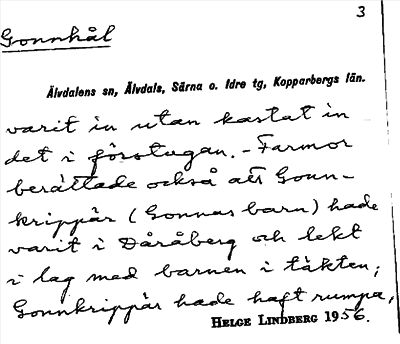 3
Gonnhål
Älvdalens sn, Älvdals, Särna o. Idre tg, Kopparbergs län.
varit in utan kastat in
det i förstugan. - Farmor
berättade också att Gonn-
krippär (Gonnas barn) hade
varit i Dåråberg och lekt
i lag med barnen i täkten;
Gonnkrippär hade haft rumpa,
HELGE LINDBERG 1956.